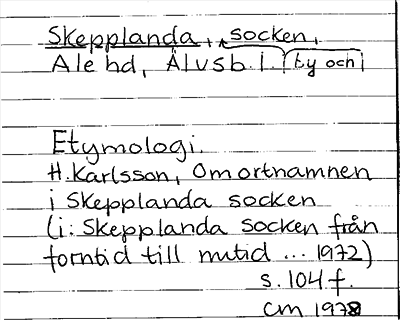 Skepplanda, socken,
Ale hd, Älvsb. l. (by och)
Etymologi.
H. Karlsson, Om ortnamnen
i Skepplanda socken
(i: Skepplanda socken från
forntid till nutid ... 1972)
s. 104 f.
CM 1978